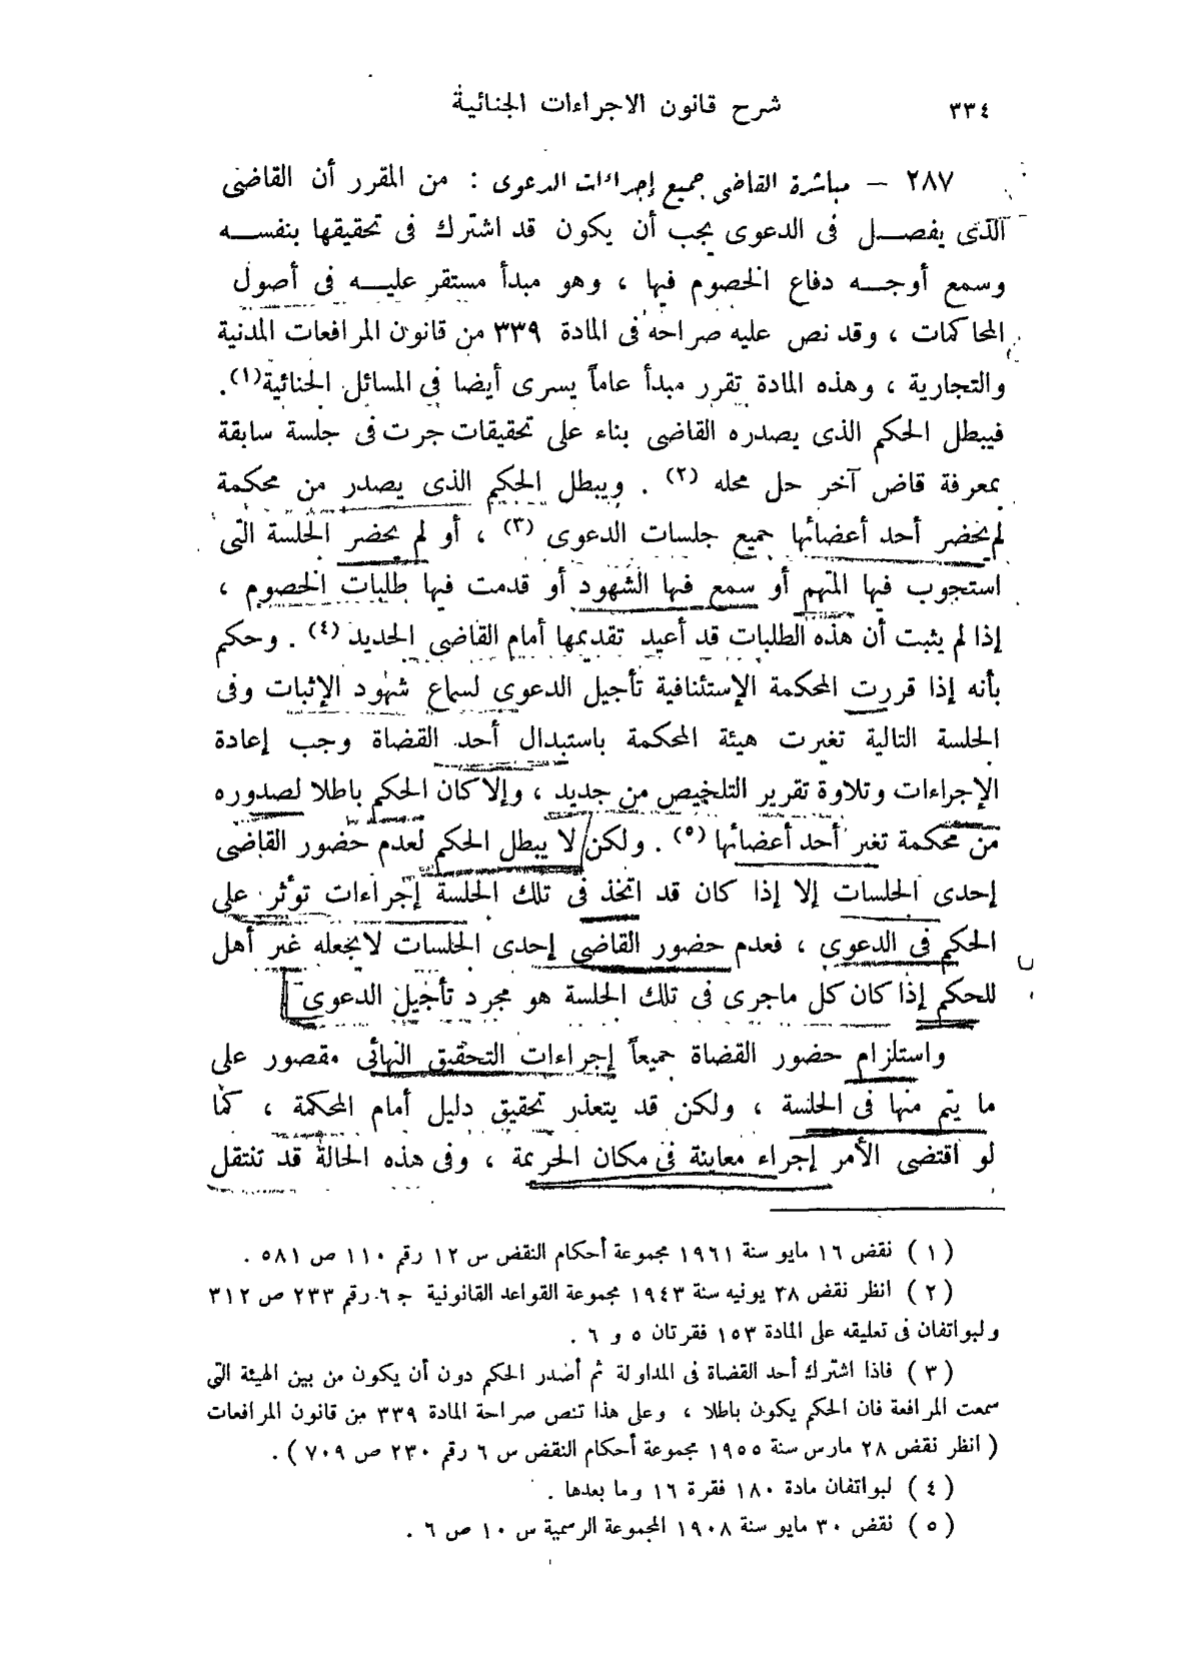 ٣٣٤ شرح قانون الاجراءات الجنائية
٢٨٧ – مباشرة القاضى جميع إجراءات الدعوى : من المقرر أن القاضى
الذى يفصل فى الدعوى يجب أن يكون قد اشترك فى تحقيقها بنفسه
وسمع أوجه دفاع الخصوم فيها ، وهو مبدأ مستقر عليه فى أصول
المحاكمات ، وقد نص عليه صراحه فى المادة ٣٣٩ من قانون المرافعات المدنية
والتجارية ، وهذه المادة تقرر مبدأ عاماً يسرى أيضا فى المسائل الجنائية(١).
فيبطل الحكم الذى يصدره القاضى بناء على تحقيقات جرت فى جلسة سابقة
بمعرفة قاض آخر حل محله (٢) . ويبطل الحكم الذى يصدر من محكمة
لم يحضر أحد أعضائها جميع جلسات الدعوى (٣) ، أو لم يحضر الجلسة التى
استجوب فيها المتهم أو سمع فيها الشهود أو قدمت فيها طلبات الخصوم ،
إذا لم يثبت أن هذه الطلبات قد أعيد تقديمها أمام القاضى الجديد (٤) . وحكم
بأنه إذا قررت المحكمة الإستئنافية تأجيل الدعوى لسماع شهود الإثبات وفى
الجلسة التالية تغيرت هيئة المحكمة باستبدال أحد القضاة وجب إعادة
الإجراءات وتلاوة تقرير التلخيص من جديد ، وإلا كان الحكم باطلا لصدوره
من محكمة تغير أحد أعضائها (٥) . ولكن لا يبطل الحكم لعدم حضور القاضى
إحدى الجلسات إلا إذا كان قد اتخذ فى تلك الجلسة إجراءات تؤثر على
الحكم فى الدعوى ، فعدم حضور القاضى إحدى الجلسات لا يجعله غير أهل
للحكم إذا كان كل ماجرى فى تلك الجلسة هو مجرد تأجيل الدعوى
واستلزام حضور القضاة جميعاً إجراءات التحقيق النهائى مقصور على
ما يتم منها فى الجلسة ، ولكن قد يتعذر تحقيق دليل أمام المحكمة ، كما
لو اقتضى الأمر إجراء معاينة فى مكان الجريمة ، وفى هذه الحالة قد تنتقل
( ١ ) نقض ١٦ مايو سنة ١٩٦١ مجموعة أحكام النقض س ١٢ رقم ١١٠ ص ٥٨١ .
( ٢ ) انظر نقض ٢٨ يونيه سنة ١٩٤٣ مجموعة القواعد القانونية ج ٦ رقم ٢٣٣ ص ٣١٢
ولبواتفان فى تعليقه على المادة ١٥٣ فقرتان ٥ و ٦ .
( ٣ ) فاذا اشترك أحد القضاة فى المداولة ثم أصدر الحكم دون أن يكون من بين الهيئة التى
سمعت المرافعة فان الحكم يكون باطلا ، وعلى هذا تنص صراحة المادة ٣٣٩ من قانون المرافعات
( انظر نقض ٢٨ مارس سنة ١٩٥٥ مجموعة أحكام النقض س ٦ رقم ٢٣٠ ص ٧٠٩ ) .
( ٤ ) لبواتفان مادة ١٨٠ فقرة ١٦ وما بعدها .
( ٥ ) نقض ٣٠ مايو سنة ١٩٠٨ المجموعة الرسمية س ١٠ ص ٦ .